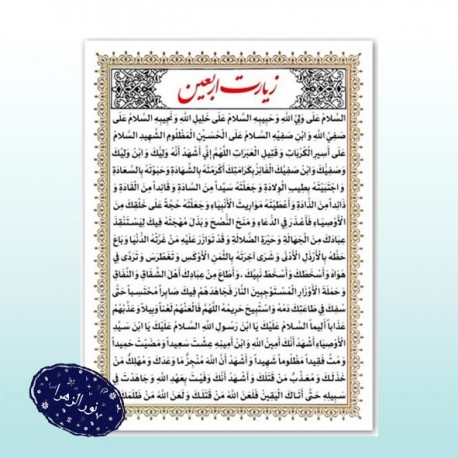 زیارت اربعین
السَّلامُ عَلَى وَلِيِّ اللَّهِ وَحَبِيبِهِ السَّلامُ عَلَى خَلِيلِ اللَّهِ وَنَجِيبِهِ السَّلامُ عَلَى
صَفِيِّ اللَّهِ وَابْنِ صَفِيِّهِ السَّلامُ عَلَى الْحُسَيْنِ الْمَظْلُومِ الشَّهِيدِ السَّلامُ
عَلَى أَسِيرِ الْكُرُبَاتِ وَ قَتِيلِ الْعَبَرَاتِ اللَّهُمَّ إِنِّي أَشْهَدُ أَنَّهُ وَلِيُّكَ وَابْنُ وَلِيِّكَ
وَصَفِيُّكَ وَابْنُ صَفِيِّكَ الْفَائِزُ بِكَرَامَتِكَ أَكْرَمْتَهُ بِالشَّهَادَةِ وَحَبَوْتَهُ بِالسَّعَادَةِ
وَ اجْتَبَيْتَهُ بِطِيبِ الْوِلادَةِ وَ جَعَلْتَهُ سَيِّداً مِنَ السَّادَةِ وَ قَائِداً مِنَ الْقَادَةِ وَ
ذَائِداً مِنَ الذَّادَةِ وَ أَعْطَيْتَهُ مَوَارِيثَ الْأَنْبِيَاءِ وَجَعَلْتَهُ حُجَّةً عَلَى خَلْقِكَ مِنَ
الْأَوْصِيَاءِ فَأَعْذَرَ فِي الدُّعَاءِ وَ مَنَحَ النُّصْحَ وَ بَذَلَ مُهْجَتَهُ فِيكَ لِيَسْتَنْقِذَ
عِبَادَكَ مِنَ الْجَهَالَةِ وَ حَيْرَةِ الضَّلالَةِ وَ قَدْ تَوَازَرَ عَلَيْهِ مَنْ غَرَّتْهُ الدُّنْيَا وَ بَاعَ
حَظَّهُ بِالْأَرْذَلِ الْأَدْنَى وَ شَرَى آخِرَتَهُ بِالثَّمَنِ الْأَوْكَسِ وَ تَغَطْرَسَ وَ تَرَدَّى فِي
هَوَاهُ وَ أَسْخَطَكَ وَ أَسْخَطَ نَبِيَّكَ ، وَ أَطَاعَ مِنْ عِبَادِكَ أَهْلَ الشِّقَاقِ وَ النِّفَاقِ
وَ حَمَلَةَ الْأَوْزَارِ الْمُسْتَوْجِبِينَ النَّارَ فَجَاهَدَهُمْ فِيكَ صَابِراً مُحْتَسِباً حَتَّى
سُفِكَ فِي طَاعَتِكَ دَمُهُ وَ اسْتُبِيحَ حَرِيمُهُ اللَّهُمَّ فَالْعَنْهُمْ لَعْناً وَبِيلاً وَ عَذِّبْهُمْ
عَذَاباً أَلِيماً السَّلامُ عَلَيْكَ يَا ابْنَ رَسُولِ اللَّهِ السَّلامُ عَلَيْكَ يَا ابْنَ سَيِّدِ
الْأَوْصِيَاءِ أَشْهَدُ أَنَّكَ أَمِينُ اللَّهِ وَابْنُ أَمِينِهِ عِشْتَ سَعِيداً وَ مَضَيْتَ حَمِيداً
وَ مُتَّ فَقِيداً مَظْلُوماً شَهِيداً وَ أَشْهَدُ أَنَّ اللَّهَ مُنْجِزٌ مَا وَعَدَكَ وَ مُهْلِكٌ مَنْ
خَذَلَكَ وَ مُعَذِّبٌ مَنْ قَتَلَكَ وَ أَشْهَدُ أَنَّكَ وَفَيْتَ بِعَهْدِ اللَّهِ وَ جَاهَدْتَ فِي
سَبِيلِهِ حَتَّى أَتَاكَ الْيَقِينُ فَلَعَنَ اللَّهُ مَنْ قَتَلَكَ وَ لَعَنَ اللَّهُ مَنْ ظَلَمَكَ
نورالزهرا